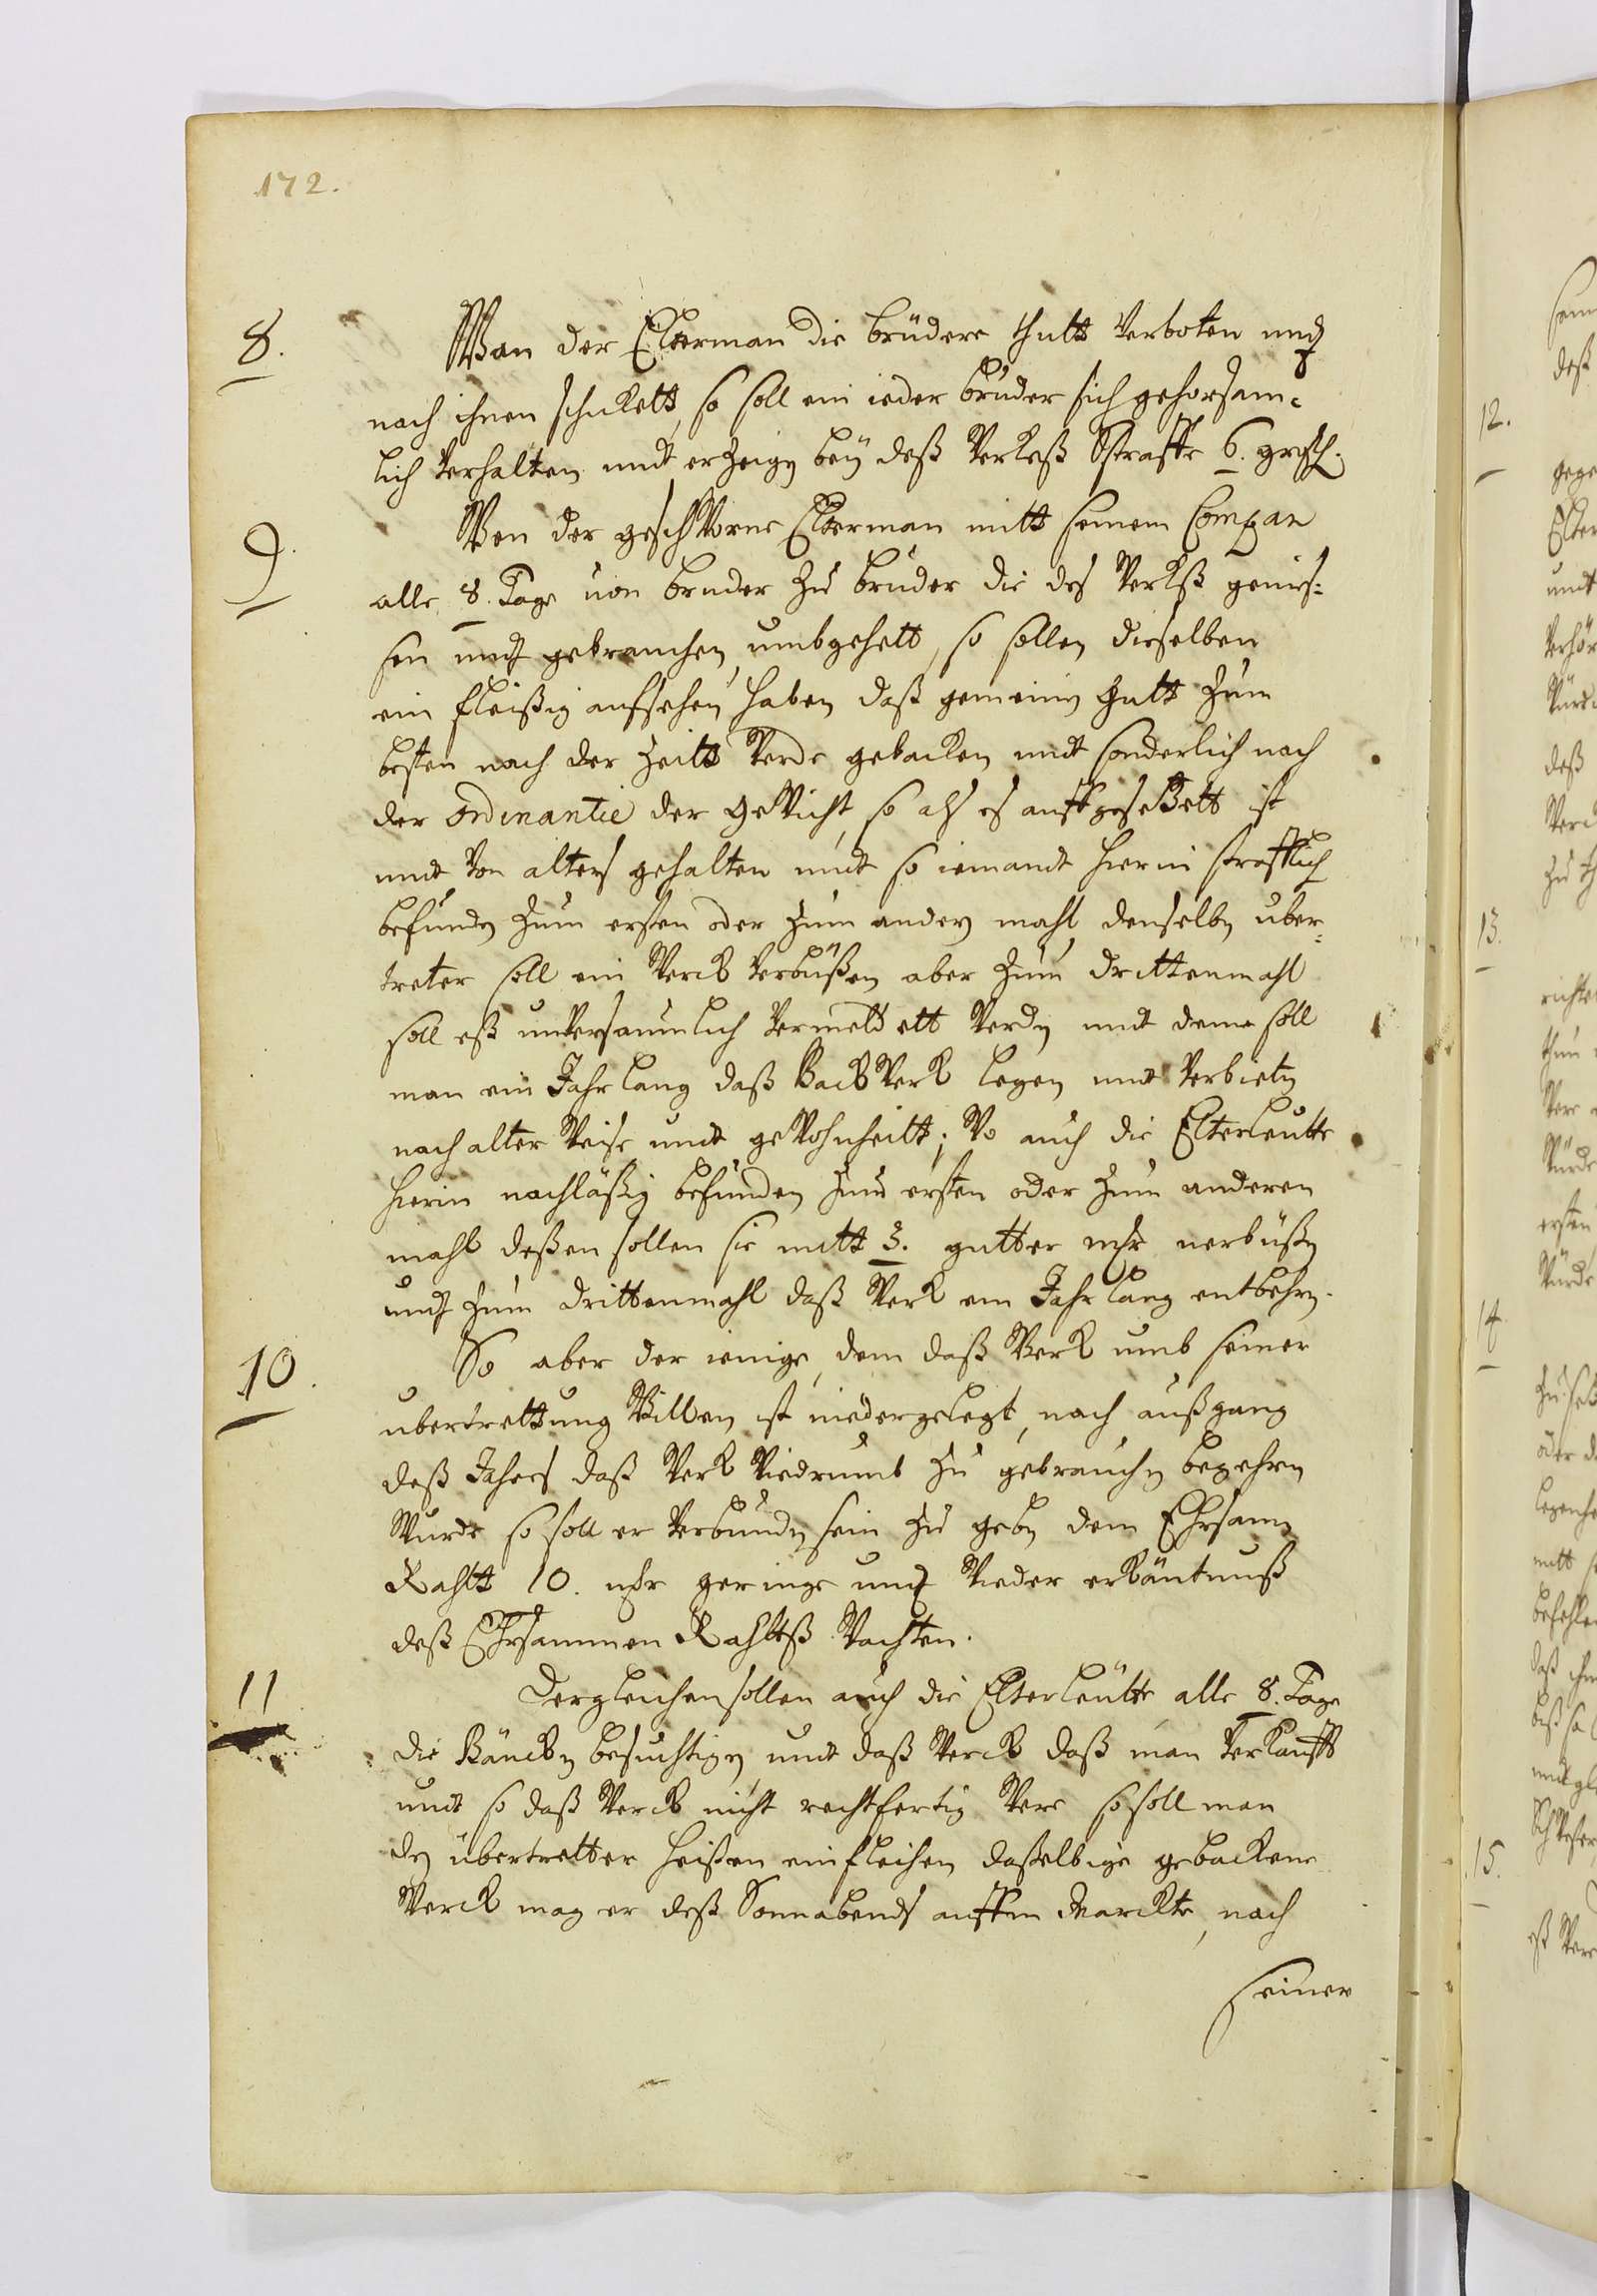 172.
8. Wan der Elterman die brüdere thutt verboten undt
nach ihnen schickett, so soll ein ieder bruder sich gehorsam-
lich verhalten undt erzeigen beÿ deß Werkeß Straffe 6. grosch.
9. Wen der geschworne Elterman mitt seinem Compan
alle 8. Tage von bruder zu bruder die des Werkß genies-
sen undt gebrauchen, umbgehett, so sollen dieselben
ein fleißig aufsehen haben, daß gemeine gutt zum
besten nach der Zeitt werde gebacken undt sonderlich nach
der ordinantie der gewicht, so als es auffgesetzett ist
undt von alters gehalten undt so iemandt hierin strafflich
befunden zum ersten oder zum andern mahl denselben uber-
treter soll ein Werck verbüßen aber zum drittenmahl
soll eß unversaumlich vermeldett werden undt deme soll
man ein Jahr lang daß Backwerk legen undt verbieten
nach alter weise undt gewohnheitt; Wo auch die Elterleutte
hierin nachläßig befunden zum ersten oder zum anderen
mahl deßen sollen sie mitt 3. gutter mk verbüßen
undt zum drittenmahl daß Werk ein Jahr lang entbehren.
10. So aber der ienige, dem daß Werk umb seiner
ubertrettung willen ist niedergelegt, nach außgang
deß Jahres daß Werk wiedrumb zu gebrauchen begehren
wurde so soll er verbunden sein zu geben dem Ehrsamen
Rahtt 10. mk geringe undt wieder erkäntnuß
deß Ehrsammen Rahtteß wachten.
11 Dergleichen sollen auch die Elterleutte alle 8. Tage
die Bäncken besichtigen undt daß Werck daß man verkaufft
undt so daß Werck nicht rechtfertig were so soll man
den übertretter heißen einfleihen, daßelbige gebackene
Werck mag er deß Sonnabends auffm Marckte, nach
seiner
12.
13.
14
15.